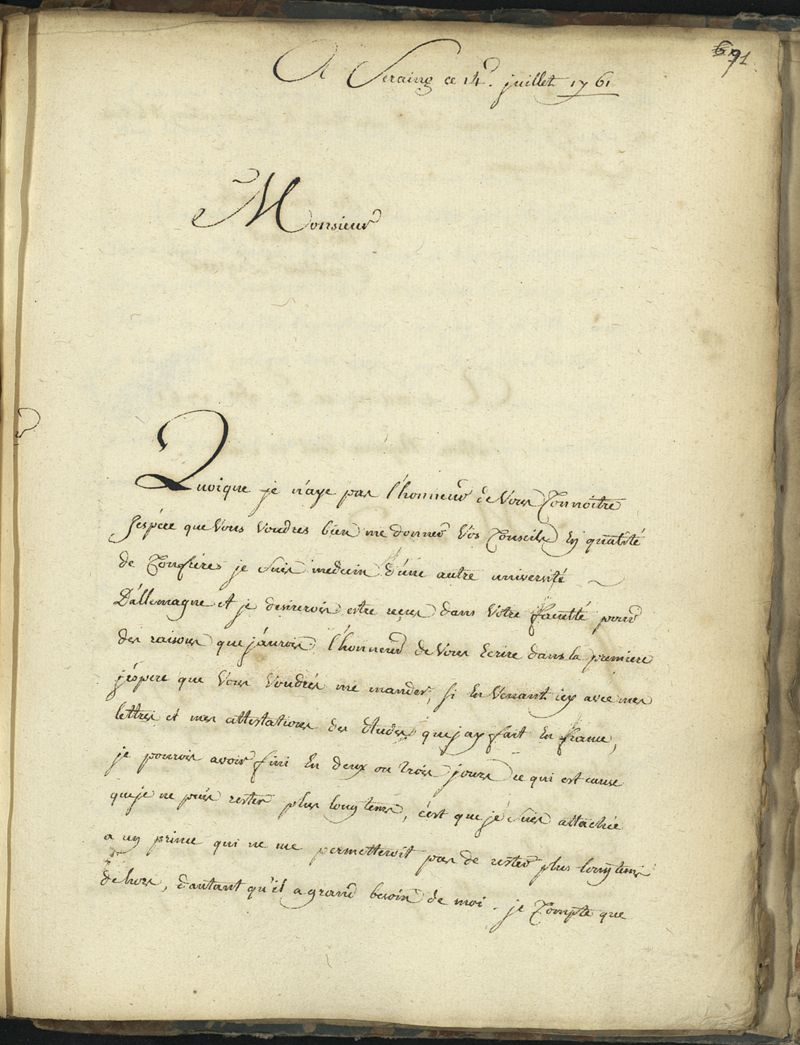 91
A Seraing ce 14e. juillet 1761
Monsieur
Quoique je n'aye pas l'honneur de Vous Connoitre
Jespéee que Vous Voudres bien me donner Vos Conseils En qualité
de Confrére, je suis medecin d'une autre université
D'allemagne et je desirerois estre reçus dans Votre faculté pour
des raisons que j'aurois l'honneur de Vous Ecrire dans la premiere
j'éspere que Vous Voudrés me mander, si En Venant icy avec mes
lettres et mes attestations des études que j'ay fait En france,
je pourois avoir fini En deux ou trois jours ce qui est cause
que je ne puis rester plus longtems, c'est que je suis attachée
a un prince qui ne me permetteroit pas de rester plus longtems
dehors, d'autant qu'il a grand besoin de moi. je Compte que